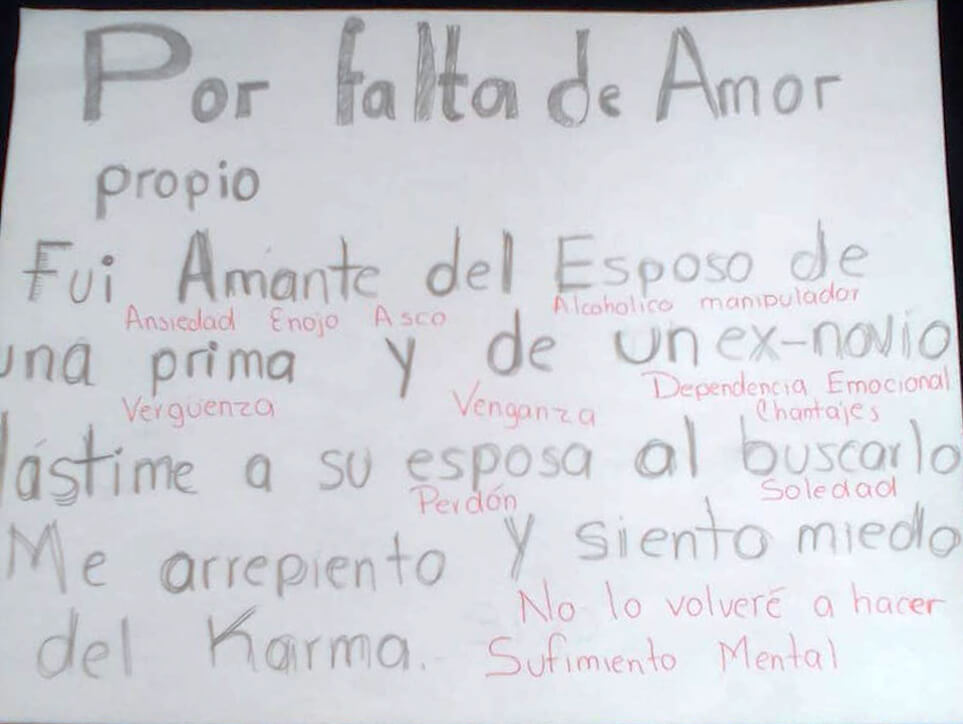 Por falta de Amor
propio
Fui Amante del Esposo de
Ansiedad Enojo Asco Alcoholico manipulador
una prima y de un ex-novio
Vergüenza Venganza Dependencia Emocional
Chantajes
lástime a su esposa al buscarlo
Perdón Soledad
Me arrepiento y siento miedo
No lo volveré a hacer
del Karma. Sufimiento Mental